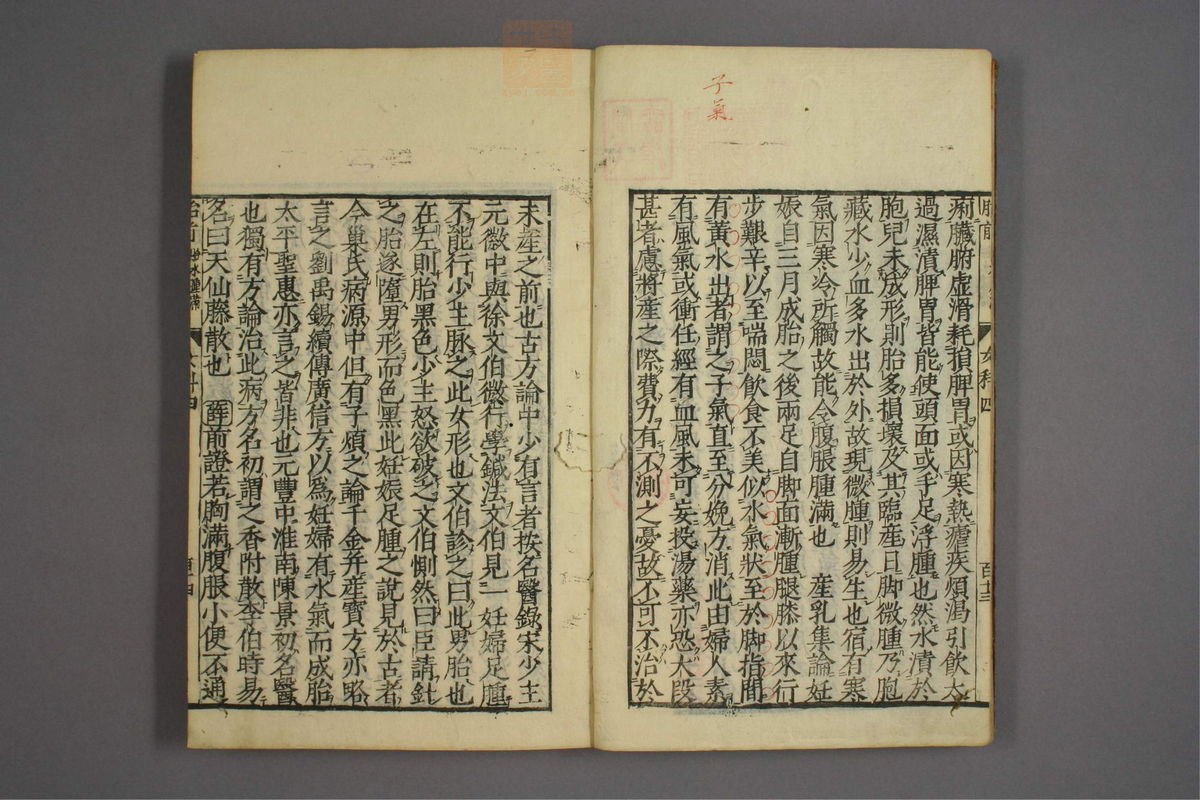 子氣
痢臟腑虛滑耗損脾胃或因寒熱瘧疾煩渴引飲太
過濕漬脾胃皆能使頭面或手足浮腫也然水漬於
胞兒未成形則胎多損壞及其臨産日脚微腫乃胞
藏水少血多水出於外故現微腫則易生也宿有寒
氣因寒冷所觸故能令腹脹腫滿也 産乳集論妊
娠自三月成胎之後兩足自脚面漸腫腿膝以來行
步艱辛以至喘悶飲食不美似水氣狀至於脚指間
有黃水出者謂之子氣直至分娩方消此由婦人素
有風氣或衝任經有血風未可妄投湯藥亦恐大段
甚者慮將産之際費力有不測之憂故不可不治於
女科四
百十三
未産之前也古方論中少有言者按名醫錄宋少主
元徽中與徐文伯微行學鍼法文伯見一妊婦足腫
不能行少主脉之此女形也文伯診之曰此男胎也
在左則胎黑色少主怒欲破之文伯惻然曰臣請針
之胎遂墮男形而色黑此妊娠足腫之說見於古者
今巢氏病源中但有子煩之論千金并産寶方亦略
言之劉禹錫續傳廣信方以爲妊婦有水氣而成胎
太平聖惠亦言之皆非也元豐中淮南陳景初名醫
也獨有方論治此病方名初謂之香附散李伯時易
名曰天仙藤散也 薛前證若胸滿腹脹小便不通